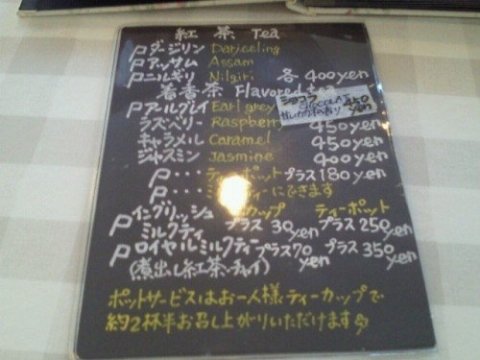 紅茶 Tea
Pダージリン Darjeeling
Pアッサム Assam
Pニルギリ Nilgiri 各400yen
着香茶 Flavored tea
ショコラ
Pアールグレイ Earl grey
ラズベリー Raspberry 450yen
キャラメル Caramel 450yen
ジャスミン Jasmine 400yen
P・・・ティーポット プラス180yen
P・・・ ティーにできます
カップ ティーポット
Pイングリッシュミルクティ プラス30yen プラス250yen
Pロイヤルミルクティー プラス70yen プラス350yen
(煮出し紅茶・チャイ)
ポットサービスはお一人様ティーカップで
約2杯半お召し上がりいただけます